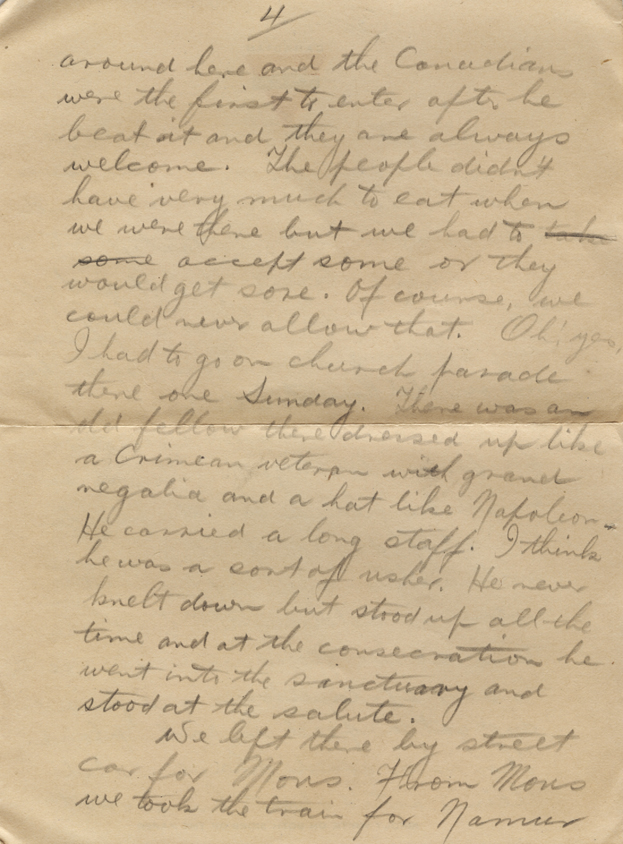 4
around here and the Canadians
were the first to enter after he
beat it and they are always
welcome. The people didn't
have very much to eat when
we were there but we had to take
some accept some or they
would get sore. Of course, we
could never allow that. Oh! yes,
I had to go on church parade
there one Sunday. There was an
old fellow there dressed up like
a Crimean veteran with grand
regalia and a hat like Napoleon.
He carried a long staff. I think
he was a sort of usher. He never
knelt down but stood up all the
time and at the consecration he
went into the sanctuary and
stood at the salute.
We left there by street
car for Mons. From Mons
we took the train for Namur